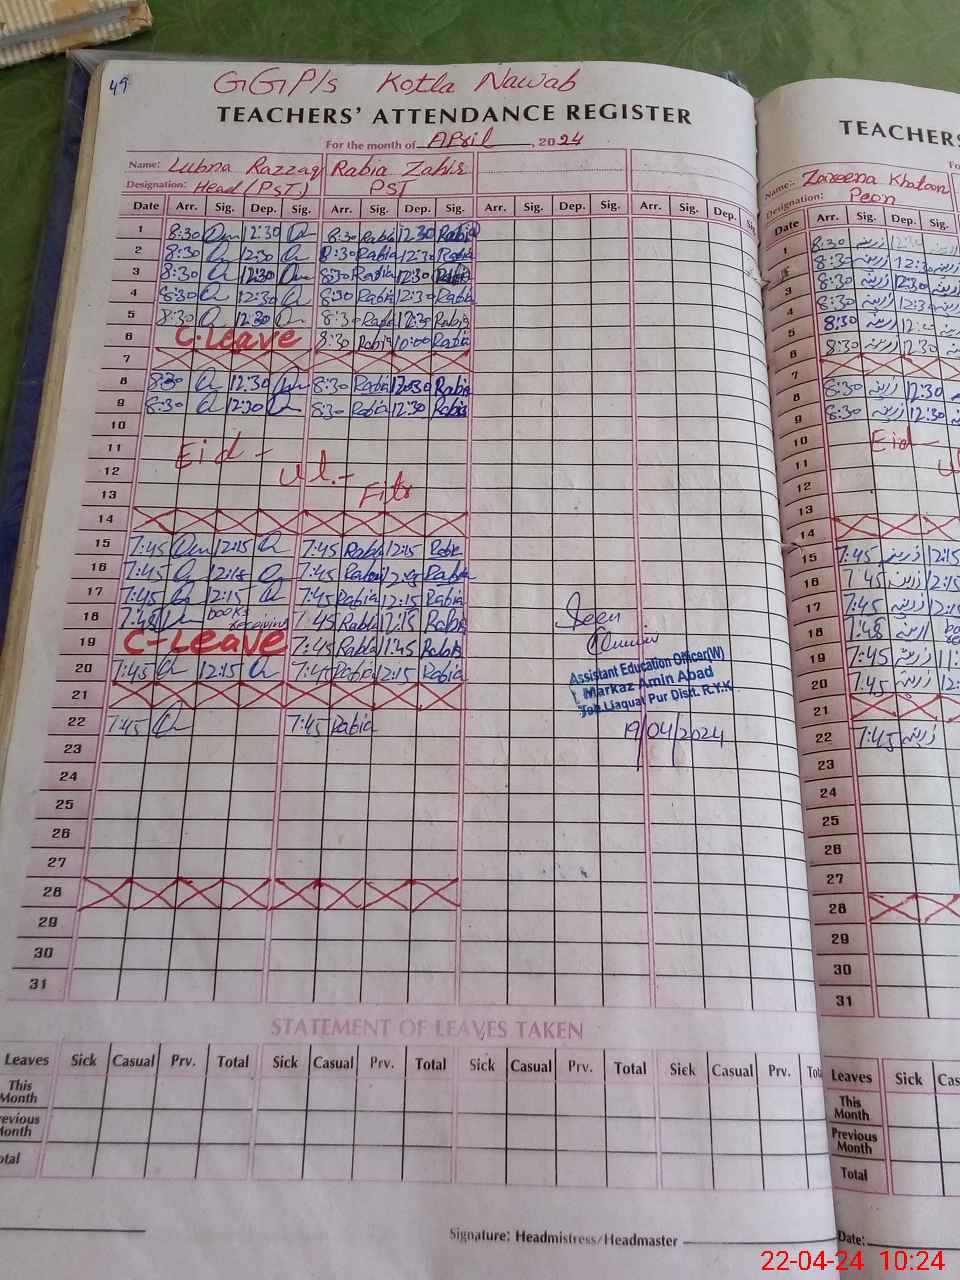 49
GGP/s Kotla Nawab
TEACHERS' ATTENDANCE REGISTER
For the month of April, 2024
Name: Lubna Razzaq Rabia Zabir
Designation: Head (PST) PST
Date Arr. Sig. Dep. Sig. Arr. Sig. Dep. Sig. Arr. Sig. Dep. Sig. Arr. Sig. Dep. Sig
1 8:30 12:30 8:30 Rabia 12:30 Rabia
2 8:30 12:30 8:30 Rabia 12:30 Rabia
3 8:30 12:30 8:30 Rabia 12:30 Rabia
4 8:30 12:30 8:30 Rabia 12:30 Rabia
5 8:30 12:30 8:30 Rabia 12:30 Rabia
6 C.Leave 8:30 Rabia 10:00 Rabia
7
8 8:30 12:30 8:30 Rabia 12:30 Rabia
9 8:30 12:30 8:30 Rabia 12:30 Rabia
10
11 Eid-
12 ul.-
13 Fitr
14
15 7:45 12:15 7:45 Rabia 12:15 Rabia
16 7:45 12:15 7:45 Rabia 12:15 Rabia
17 7:45 12:15 7:45 Rabia 12:15 Rabia
18 7:45 books receiving 7:45 Rabia 12:15 Rabia
19 C-Leave 7:45 Rabia 11:45 Rabia
20 7:45 12:15 7:45 Rabia 12:15 Rabia
21
22 7:45 7:45 Rabia
23
24
25
26
27
28
29
30
31
Seen
Assistant Education Officer(W)
Markaz Amin Abad
Teh Liaquat Pur Distt. R.Y.K
19/04/2024
STATEMENT OF LEAVES TAKEN
Leaves Sick Casual Prv. Total Sick Casual Prv. Total Sick Casual Prv. Total Sick Casual Prv.
This Month
Previous Month
Signature: Headmistress/Headmaster
TEACHERS
Name:- Zareena Khatoon
Designation: Peon
Date Arr. Sig. Dep. Sig.
1 8:30 زرینہ
8:30 زرینہ 12:30
3 8:30 زرینہ 12:30
4 8:30 زرینہ 12:30
5 8:30 زرینہ
6 8:30 زرینہ 12:30
7
8 8:30 زرینہ 12:30
9 8:30 زرینہ 12:30
10 Eid-
11
12
13
14
15 7:45 زرینہ 12:15
16 7:45 زرینہ 12:15
17 7:45 زرینہ 12:15
18 7:45 زرینہ
19 7:45 زرینہ
20 7:45 زرینہ
21
22 7:45 زرینہ
23
24
25
26
27
28
29
30
31
Leaves Sick
This Month
Previous Month
Total
Date:
22-04-24 10:24